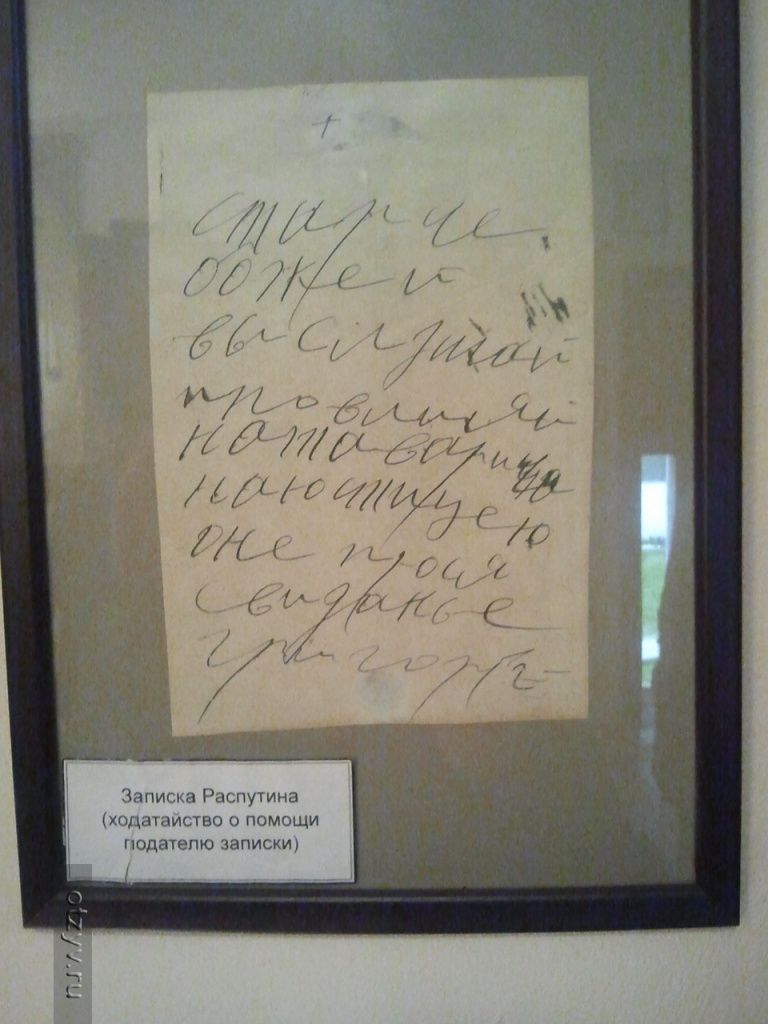 +
старче
божеи
выслушай
провлияй
натаварища
наюстицею
оне прося
свиданье
григорﻩй
Записка Распутина
(ходатайство о помощи
подателю записки)
otzyv.ru